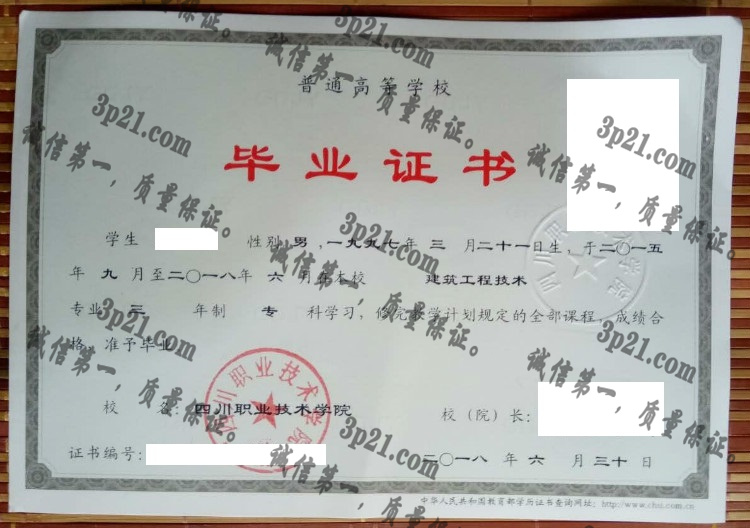 普通高等学校
毕业证书
学生 性别 男 ,一九九七年 三 月二十一日生，于二〇一五
年 九 月至二〇一八年 六 月在本校 建筑工程技术
专业 三 年制 专 科学习，修完教学计划规定的全部课程，成绩合
格，准予毕业。
校 名：四川职业技术学院 校（院）长：
证书编号： 二〇一八 年 六 月 三十 日
中华人民共和国教育部学历证书查询网址：http://www.chsi.com.cn
四川职业技术学院
3p21.com
诚信第一，质量保证。
3p21.com
诚信第一，质量保证。
3p21.com
诚信第一，质量保证。
3p21.com
诚信第一，质量保证。
3p21.com
诚信第一，质量保证。
3p21.com
诚信第一，质量保证。
3p21.com
诚信第一，质量保证。
3p21.com